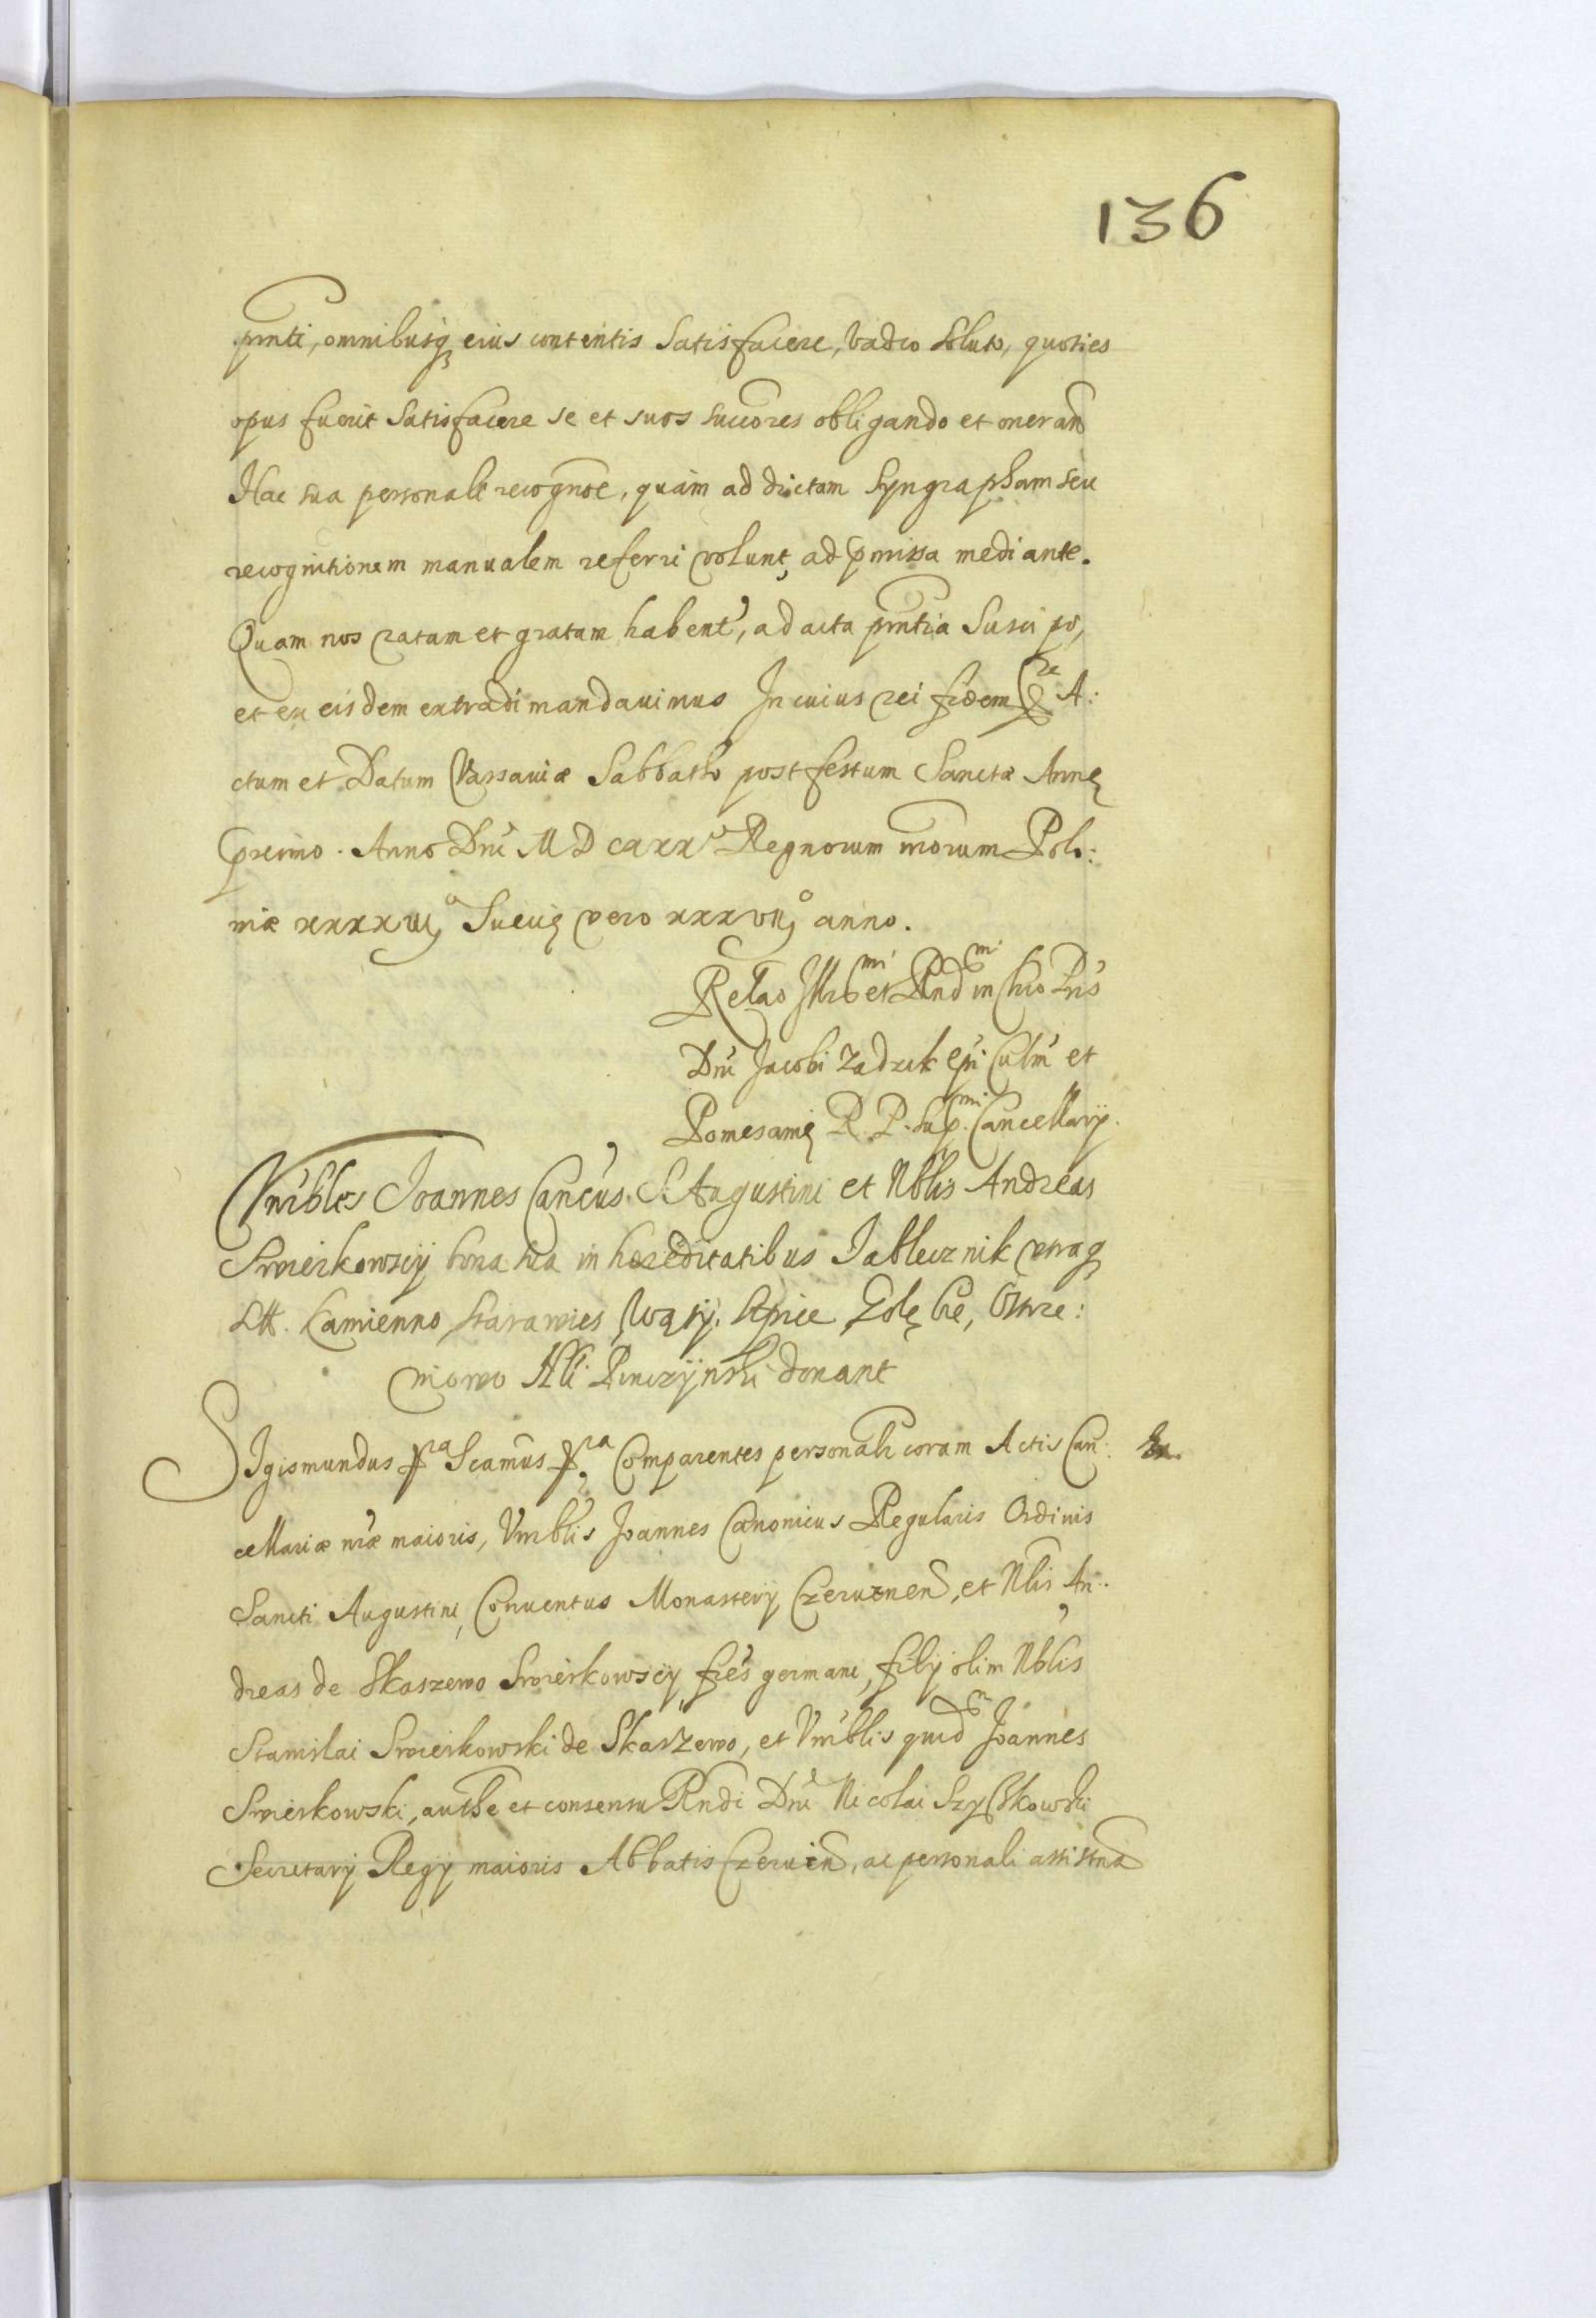 136
pmti, omnibusq eius contentis Satisfacere, vadio soluto, quoties
opus fuerit Satisfacere se et suos succores obligando et onerand
Hac sua personali recognoe, quam ad dictam Syngrapham seu
recognitionem manualem referri volunt, ad pmissa mediante.
Quam nos ratam et gratam habent, ad acta pntia Suscipo,
et ex eisdem extradi mandauimus In cuius rei fidem A:
ctum et Datum Varsauiæ Sabbatho post festum Sanctæ Annę
proximo. Anno Dni M D cxxx Regnorum nrorum Polo:
niæ xxxxiiio Suecię vero xxxviio anno.
Relao Illrmi et Rndmi in Chro Pris
Dni Jacobi Zadzik Epi Culm et
Pomesanię R. P. supmi Cancellarij.
Vnrbles Joannes Cancus S. Augustini et Nblis Andreas
Smierkowscij bona sua in hæreditatibus Jablecznik vtraq
Kamienno Starawies Golębie, Ostrze:
niowo donant
SIgismundus pra Scamus pra Comparentes personalr coram Actis Can:
cellariæ nræ maioris, Vnrblis Joannes Canonicus Regularis Ordinis
Sancti Augustini, Conuentus Monasterij Czeruenen, et Nblis An:
dreas de Skaszewo Smierkowscij fres germani, filij olim Nblis
Stanislai Smierkowski de Skaszewo, et Vnrblis quidm Joannes
Smierkowski, authe et consensu Rndi Dni Nicolai Szyszkowski
Secretarij Regij maioris Abbatis Czeruen, ac personali assistna